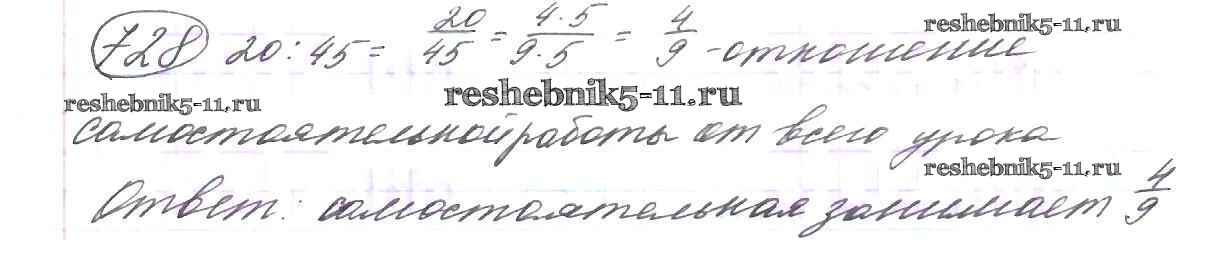 728 20 : 45 = 20/45 = 4·5/9·5 = 4/9 - отношение
reshebnik5-11.ru
reshebnik5-11.ru
reshebnik5-11.ru
самостоятельной работы от всего урока
reshebnik5-11.ru
Ответ: самостоятельная занимает 4/9